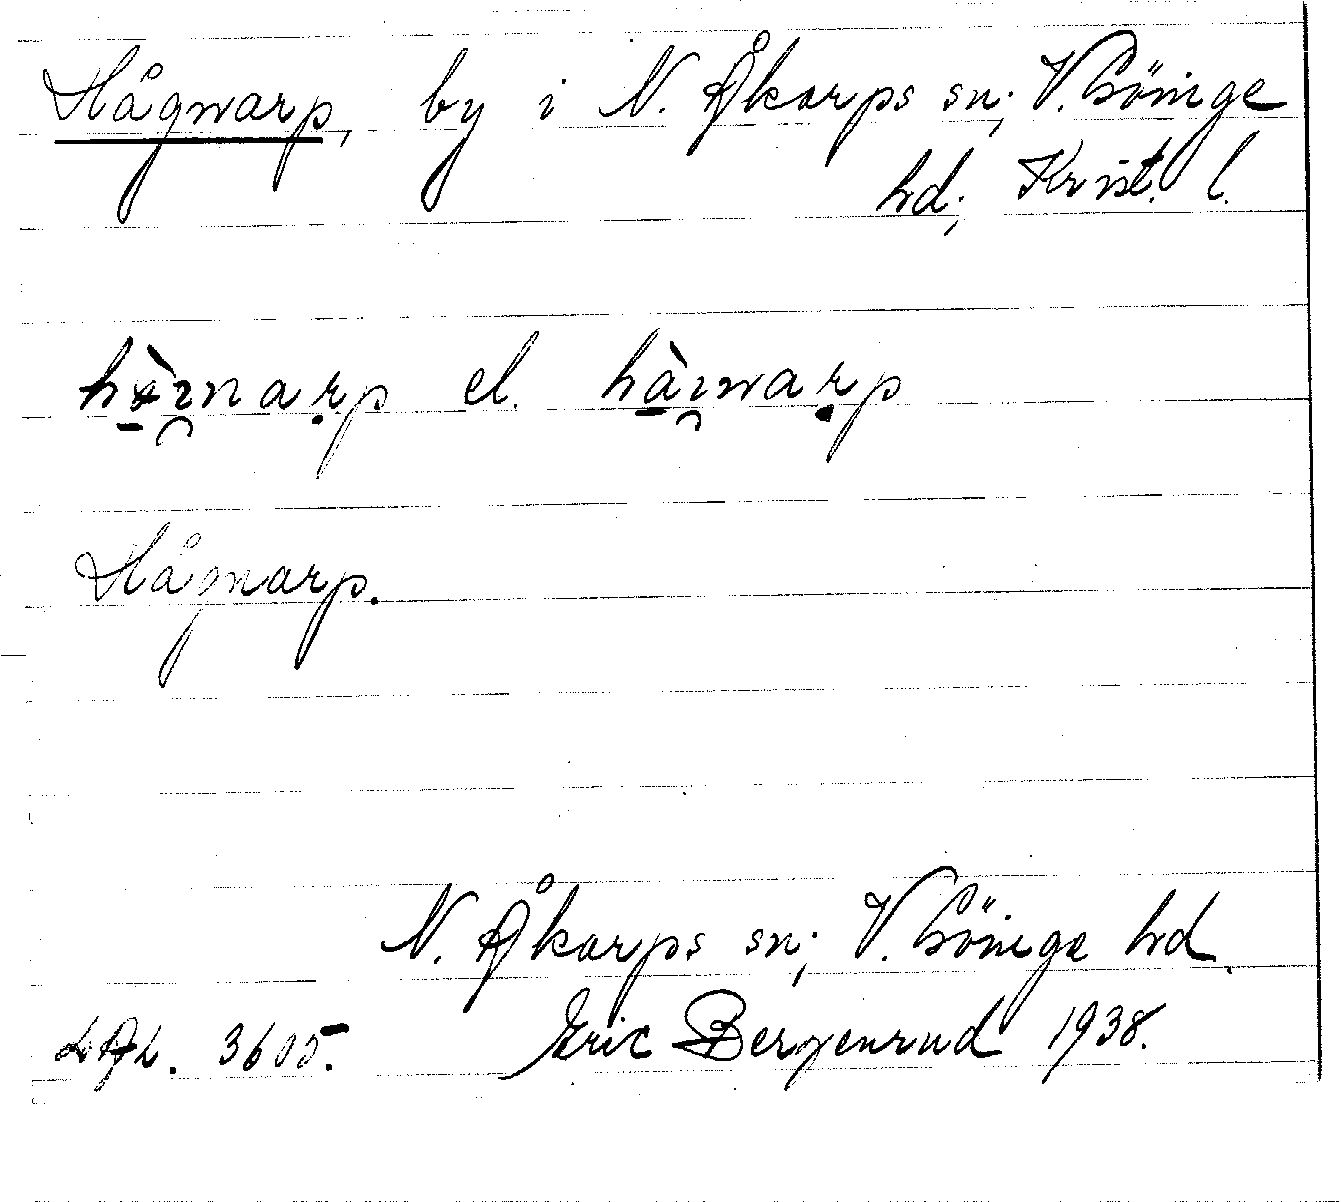 Hågnarp, by i N. Åkarps sn; V. Göinge
hd; Krist. l.
el.
Hågnarp.
N. Åkarps sn; V. Göinge hd.
LAL. 3605. Eric Bergenrud 1938.